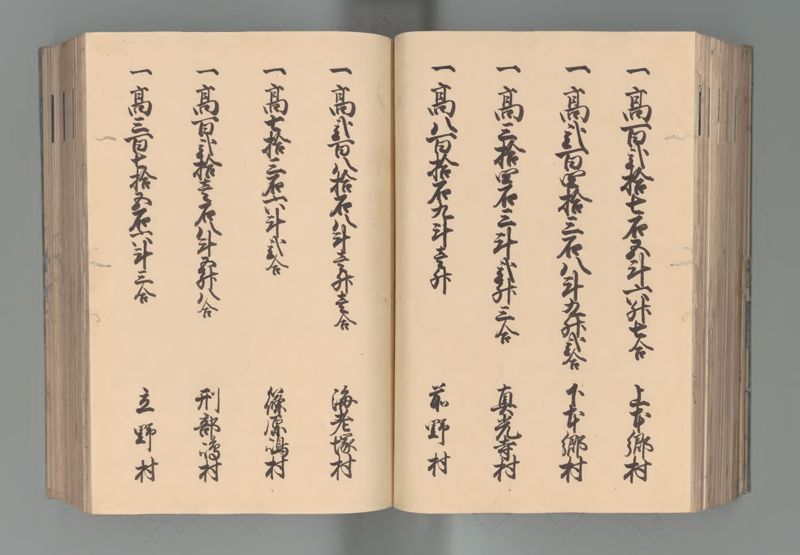 一高百弐拾七石五斗六升七合 上本郷村
一高弐百四拾三石八斗九升弐合 下本郷村
一高三拾四石三斗弐升三合 真光寺村
一高八百拾石九斗壱升 前野村
一高弐百八拾石八斗壱升壱合 海老塚村
一高七拾三石六斗弐合 篠原嶋村
一高百弐拾壱石八斗五升八合 刑部嶋村
一高三百七拾五石六斗三合 立野村